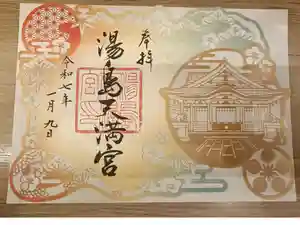 奉拝
湯島天満宮
令和七年
一月九日